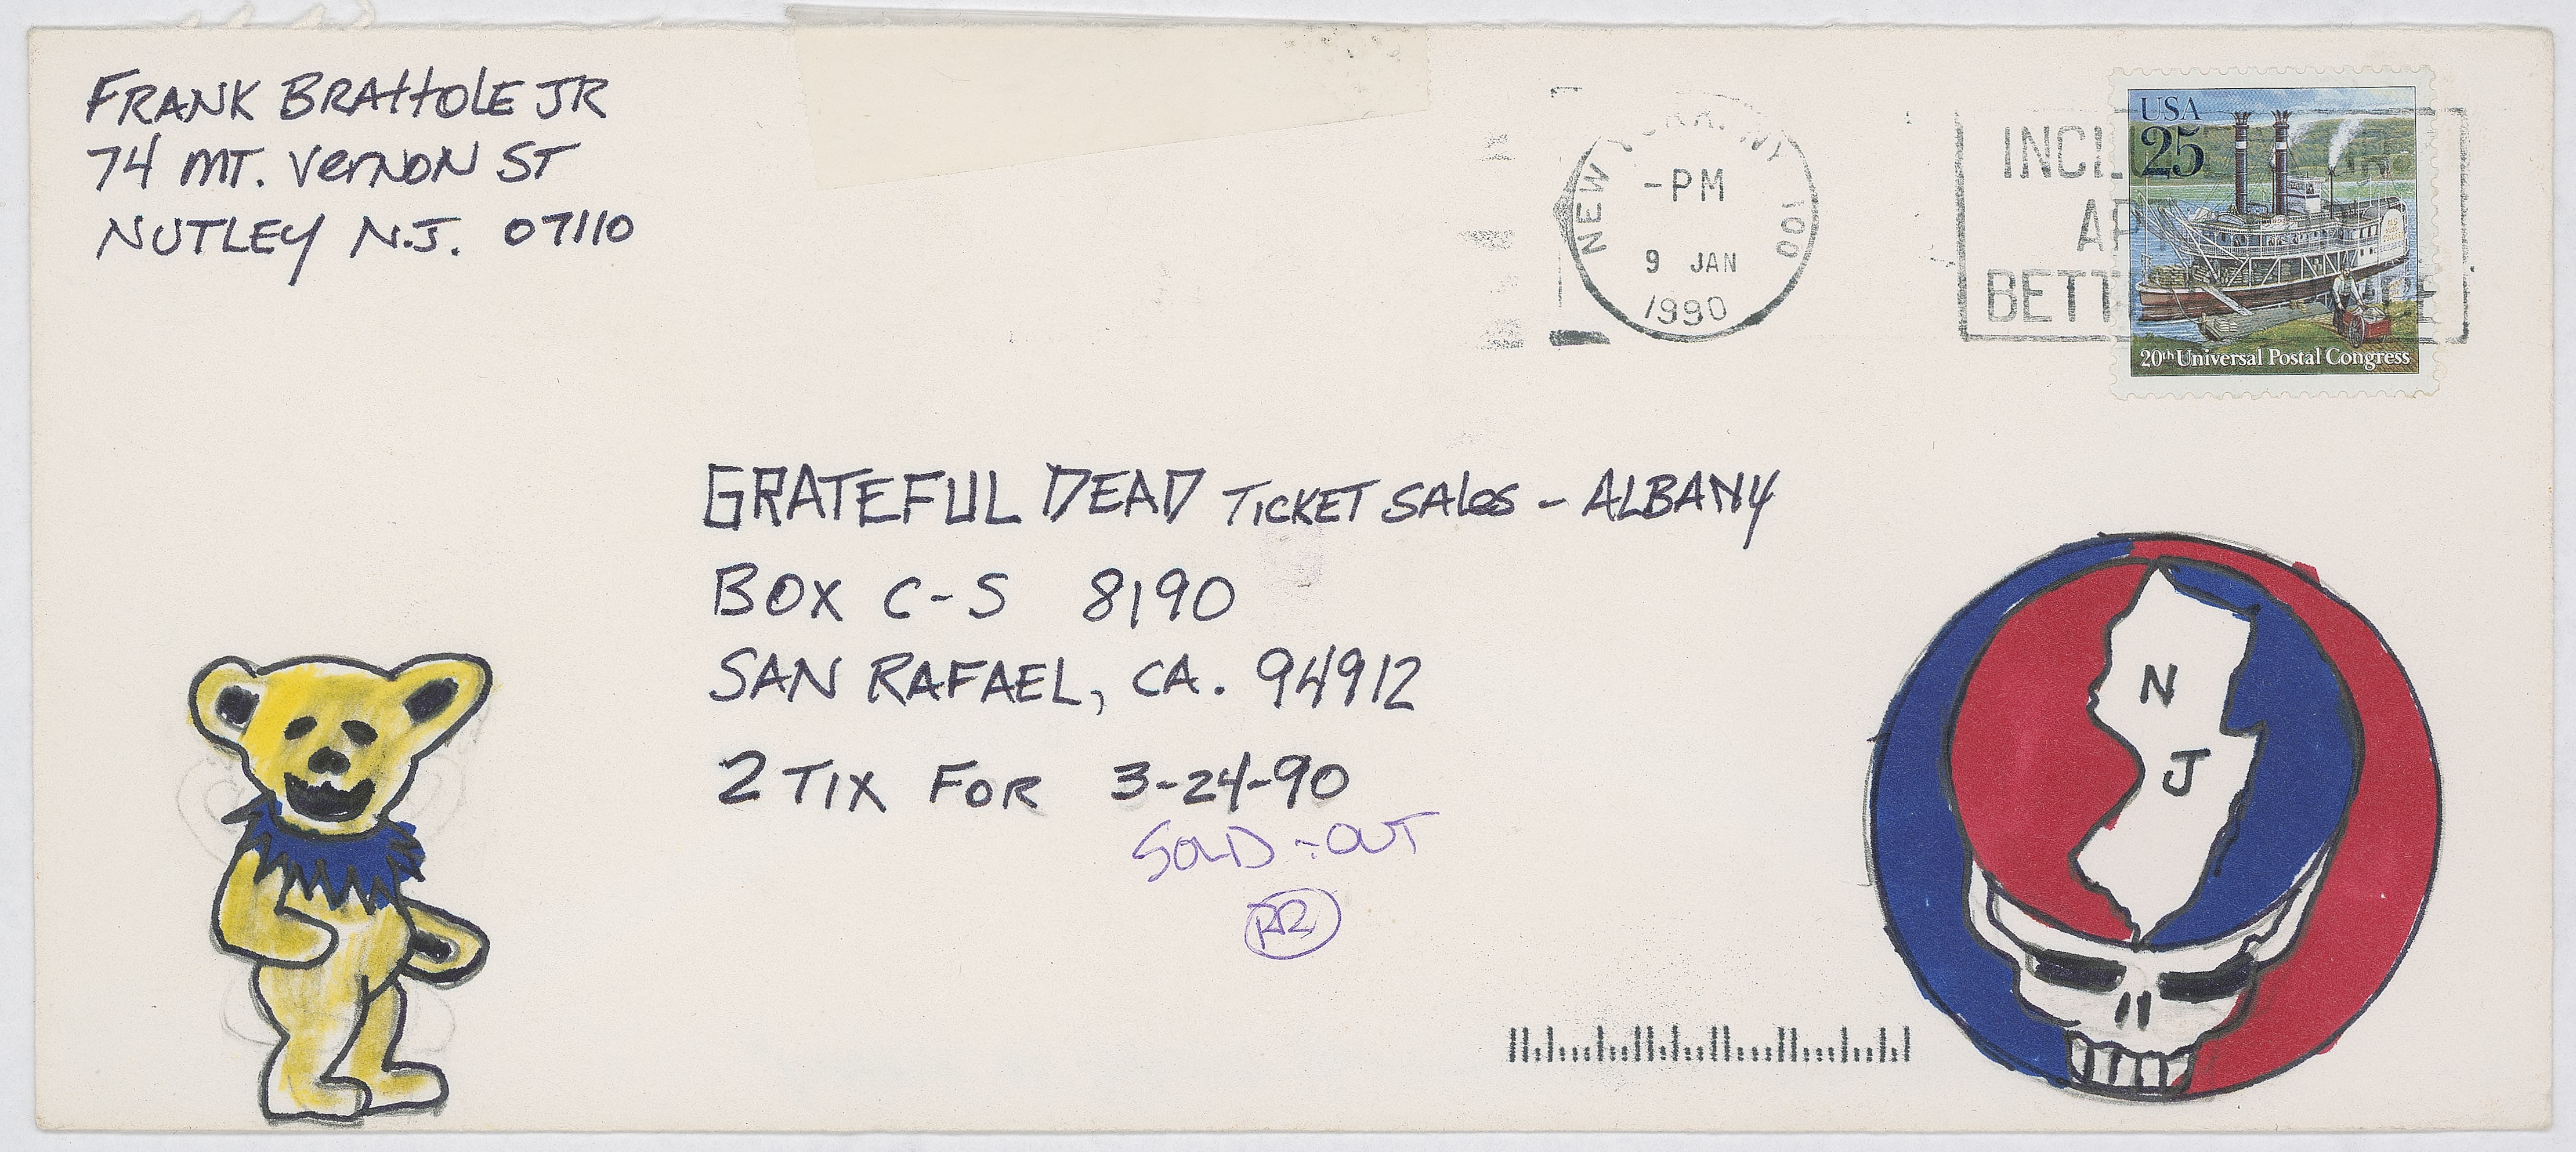 FRANK BRATTOLE JR
74 MT. VERNON ST
NUTLEY N.J. 07110
NEW YORK, NY 100
-PM
9 JAN
1990
USA
25
20th Universal Postal Congress
GRATEFUL DEAD TICKET SALES - ALBANY
BOX C-S 8190
SAN RAFAEL, CA. 94912
2 TIX FOR 3-24-90
SOLD-OUT
N
J